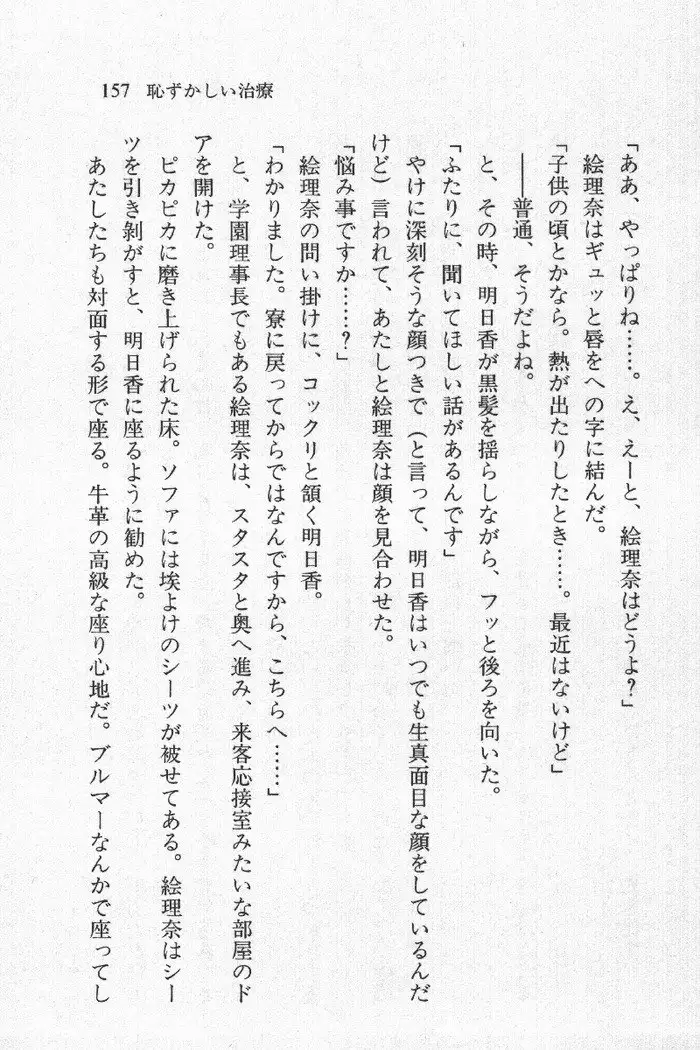 157 恥ずかしい治療
「ああ、やっぱりね……。え、えーと、絵理奈はどうよ?」
絵理奈はギュッと唇をへの字に結んだ。
「子供の頃とかなら。熱が出たりしたとき……。最近はないけど」
──普通、そうだよね。
と、その時、明日香が黒髪を揺らしながら、フッと後ろを向いた。
「ふたりに、聞いてほしい話があるんです」
やけに深刻そうな顔つきで(と言って、明日香はいつでも生真面目な顔をしているんだ
けど)言われて、あたしと絵理奈は顔を見合わせた。
「悩み事ですか……?」
絵理奈の問い掛けに、コックリと頷く明日香。
「わかりました。寮に戻ってからではなんですから、こちらへ……」
と、学園理事長でもある絵理奈は、スタスタと奥へ進み、来客応接室みたいな部屋のド
アを開けた。
ピカピカに磨き上げられた床。ソファには埃よけのシーツが被せてある。絵理奈はシー
ツを引き剝がすと、明日香に座るように勧めた。
あたしたちも対面する形で座る。牛革の高級な座り心地だ。ブルマーなんかで座ってし